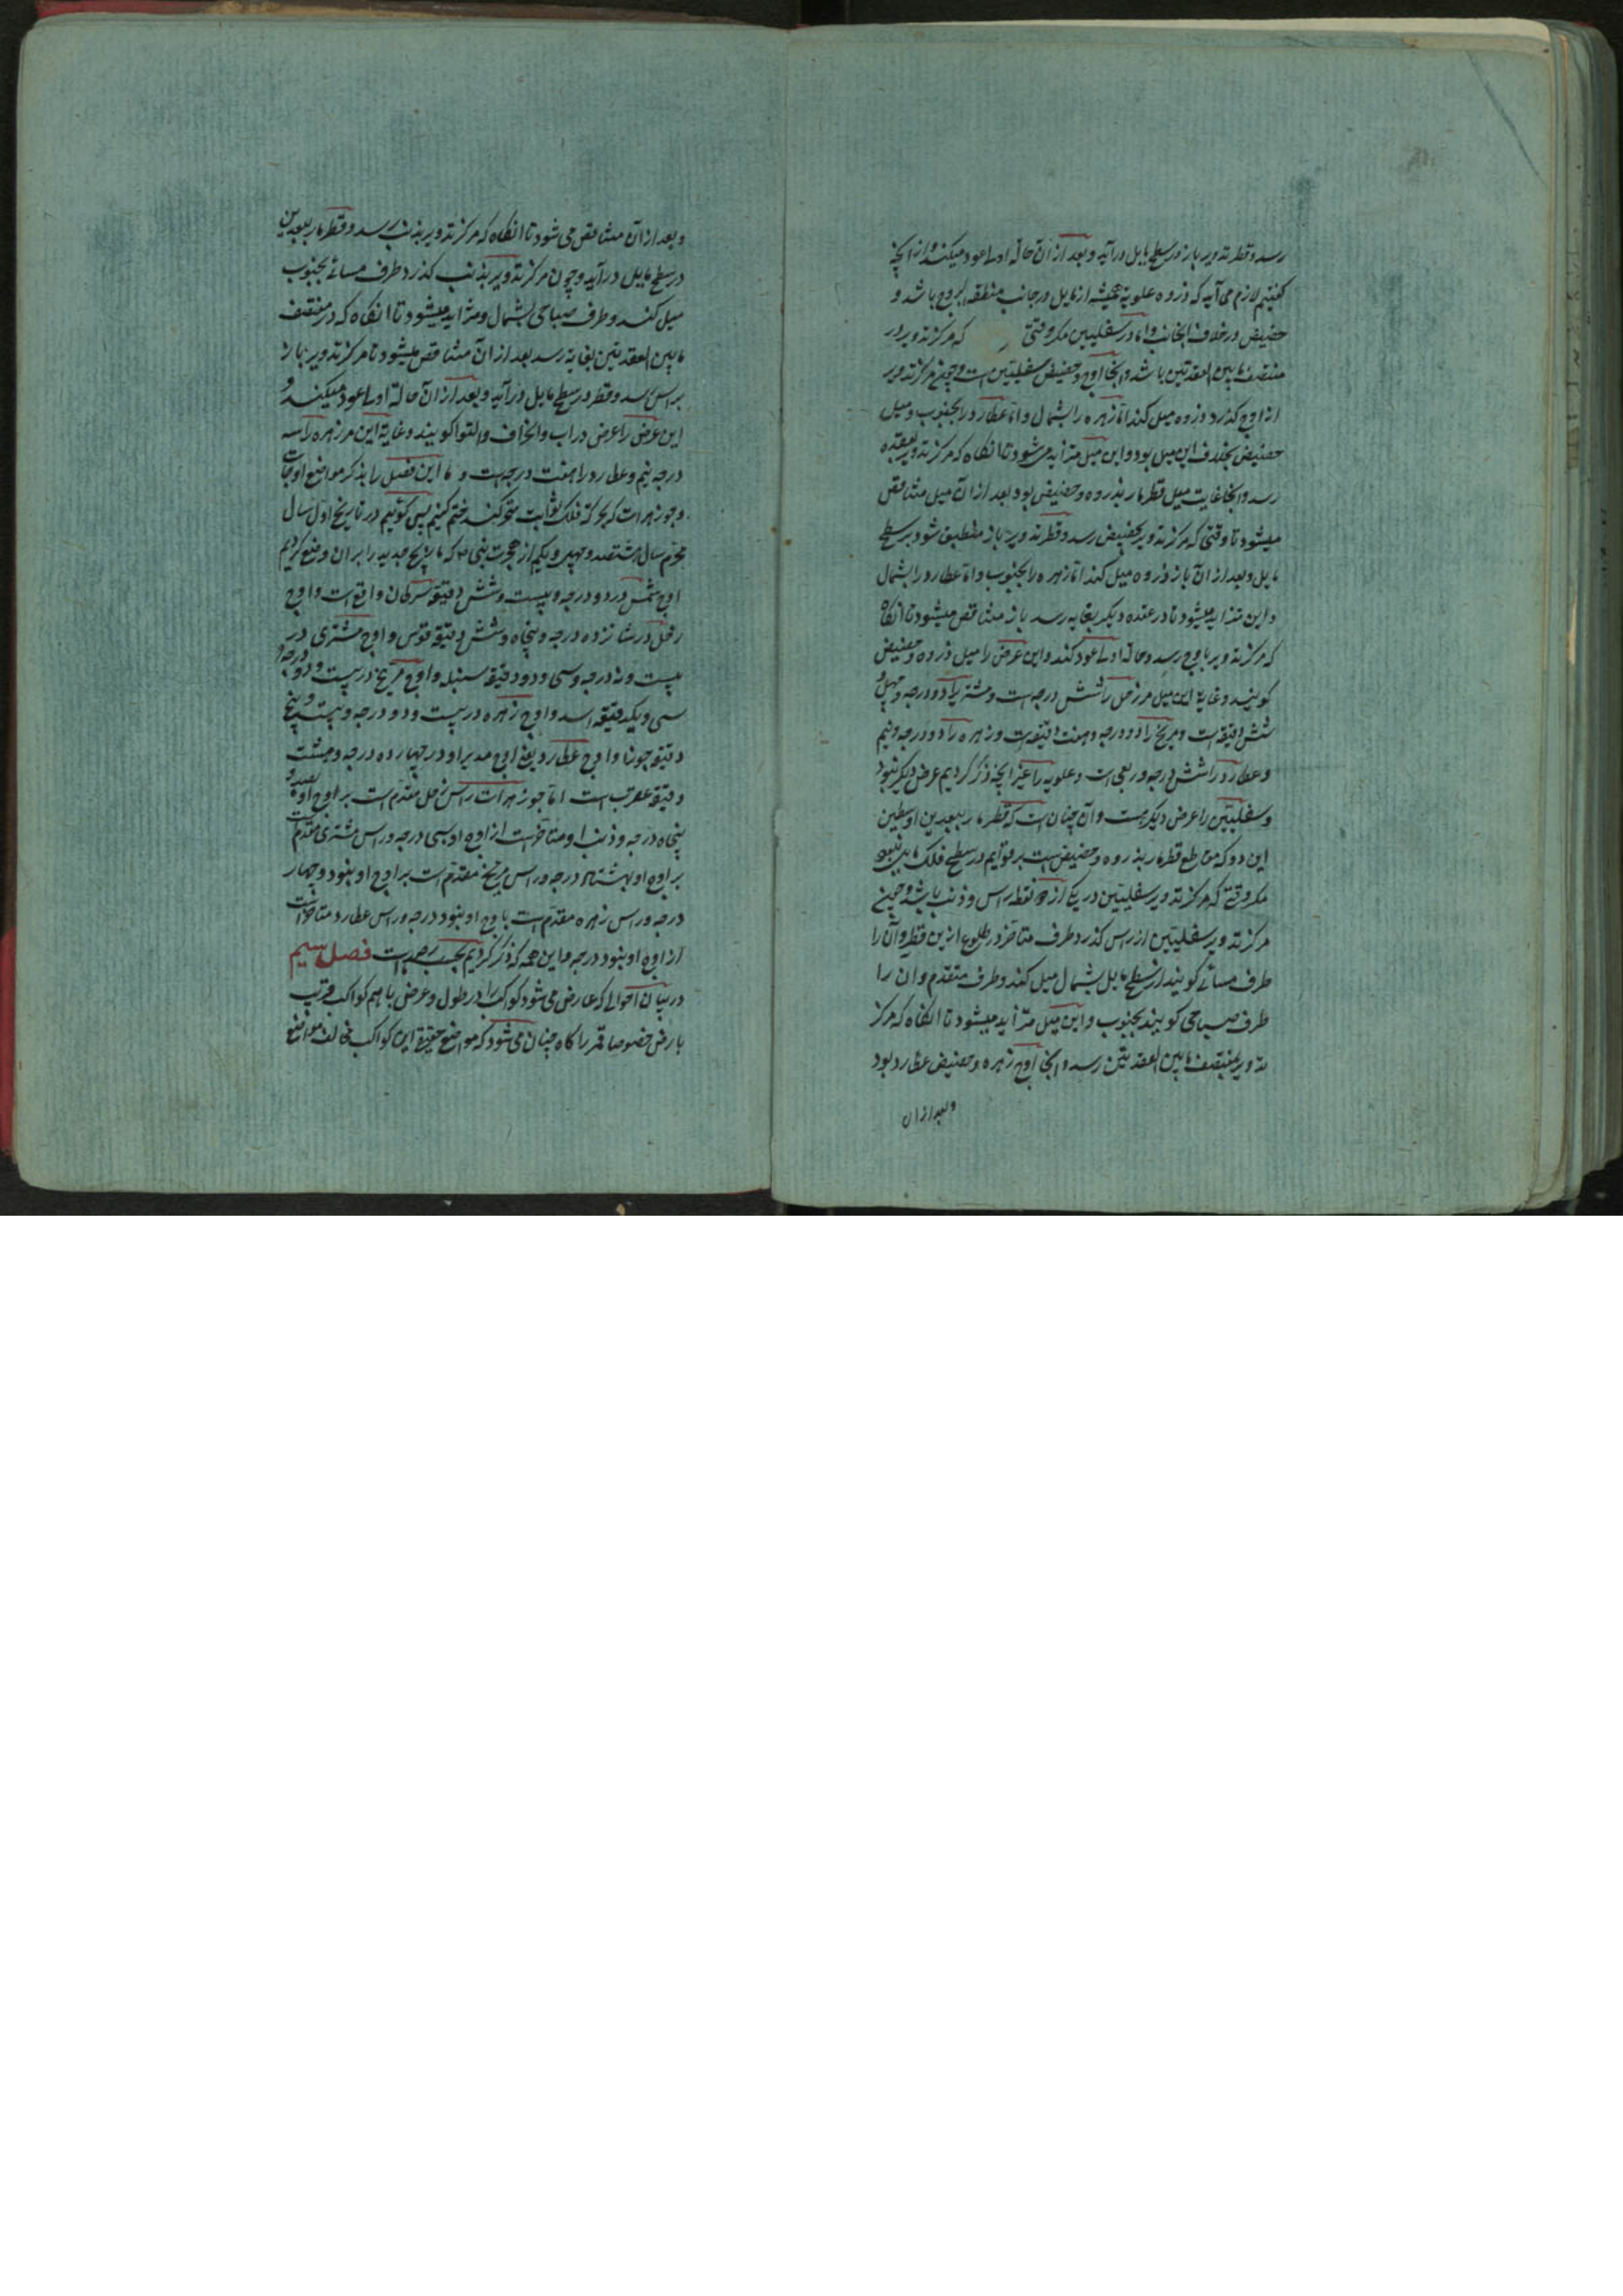 رسد و قطر تدویر باز در سطح مایل درآید و بعد از آن حالة اولی عود میکند و از آنچه
گفتیم لازم می آید که ذروه علویة همیشه از مایل در جانب منطقه البروج باشد و
حضیض در خلاف آنجانب و اما در سفلیین مکر وقتی که مرکز تدویر در
منتصف مابین العقدتین باشد و آنجا اوج و حضیض سفلیتین است و چون مرکز تدویر
از اوج گذرد ذروه میل کند اما زهره را بشمال و اما عطارد را بجنوب و میل
حضیض بخلاف این میل بود و این میل متزاید می شود تا انگاه که مرکز تدویر بعقده
رسد و آنجا غایت میل قطر مار بذروه و حضیض بود بعد از آن میل متناقص
میشود تا وقتی که مرکز تدویر بحضیض رسد و قطر تدویر باز منطبق شود بر سطح
مایل و بعد از آن باز ذروه میل کند اما زهره را بجنوب و اما عطارد را بشمال
و این متزاید میشود تا در عقده دیگر بغایه رسد باز متناقص میشود تا انگاه
که مرکز تدویر باوج رسد و حالة اولی عود کند و این عرض را میل ذروه و حضیض
گویند و غایة این میل مر زحل را شش درجه است و مشتریرا دو درجه و چهل و
شش دقیقه است و مریخ را دو درجه و هفت دقیقه است و زهره را دو درجه و نیم
و عطارد را شش درجه و ربعی است و علویه را غیر آنچه ذکر کردیم عرض دیگر نبود
و سفلیتین را عرض دیگر هست و آن چنان است که قطر مار ببعدین اوسطین
این دو که مقاطع قطر مار بذروه و حضیض است بر قوایم در سطح فلک مایل نبود
مکر وقتی که مرکز تدویر سفلیتین در یکی از دو نقطه راس و ذنب باشد و چون
مرکز تدویر سفلیتین از راس گذرد طرف متاخر در طلوع ازین قطر و آن را
طرف مسائی گویند از سطح مایل بشمال میل کند و طرف متقدم و ان را
طرف صباحی گویند بجنوب و این میل متزاید میشود تا انگاه که مرکز
تدویر بمنتصف مابین العقدتین رسد و آنجا اوج زهره و حضیض عطارد بود
و بعد از ان
و بعد از آن متناقص می شود تا انگاه که مرکز تدویر بذنب رسد و قطر مار ببعدین
در سطح مایل درآید و چون مرکز تدویر بذنب گذرد طرف مسائی بجنوب
میل کند و طرف صباحی بشمال و متزاید میشود تا انگاه که در منتصف
مابین العقدتین بغایة رسد بعد از آن متناقص میشود تا مرکز تدویر باز
براس رسد و قطر در سطح مایل درآید و بعد از آن حالة اولی عود میکند و
این عرض را عرض وراب و انحراف و التوا گویند و غایة این مر زهره را سه
درجه نیم و عطارد را هفت درجه است و ما این فصل را بذکر مواضع اوجات
و جوزهرات که بحرکة فلک ثوابت متحرکند ختم کنیم پس گوئیم در تاریخ اول سال
محرم سال هشتصد و چهل و یکم از هجرت نبی که ما زیج جدید را بران وضع کردیم
اوج شمس در دو درجه و بیست و شش دقیقه سرطان واقع است و اوج
زحل در شانزده درجه و پنجاه و شش دقیقه قوس و اوج مشتری در
بیست و نه درجه و سی و دو دقیقه سنبله و اوج مریخ در بیست و دو درجه و
سی و یکدقیقه اسد و اوج زهره در بیست و دو درجه و بیست و پنج
دقیقه جوزا و اوج عطارد یعنی اوج مدیر او در چهارده درجه و هشت
دقیقه عقرب است اما جوزهرات راس زحل مقدم است بر اوج او بصد و
پنجاه درجه و ذنب او متاخر است از اوج او بسی درجه و راس مشتری مقدم است
بر اوج او بهشتاد درجه و راس مریخ مقدم است بر اوج او بنود و چهار
درجه و راس زهره مقدم است باوج او بنود درجه و راس عطارد متاخر است
از اوج او بنود درجه و این همه که ذکر کردیم بحسب رصد ماست فصل سیم
در بیان احوالی که عارض می شود کواکب را در طول و عرض با هم کواکب قریب
بارض خصوصا قمر را گاه چنان می شود که مواضع حقیقی این کواکب مخالف مواضع